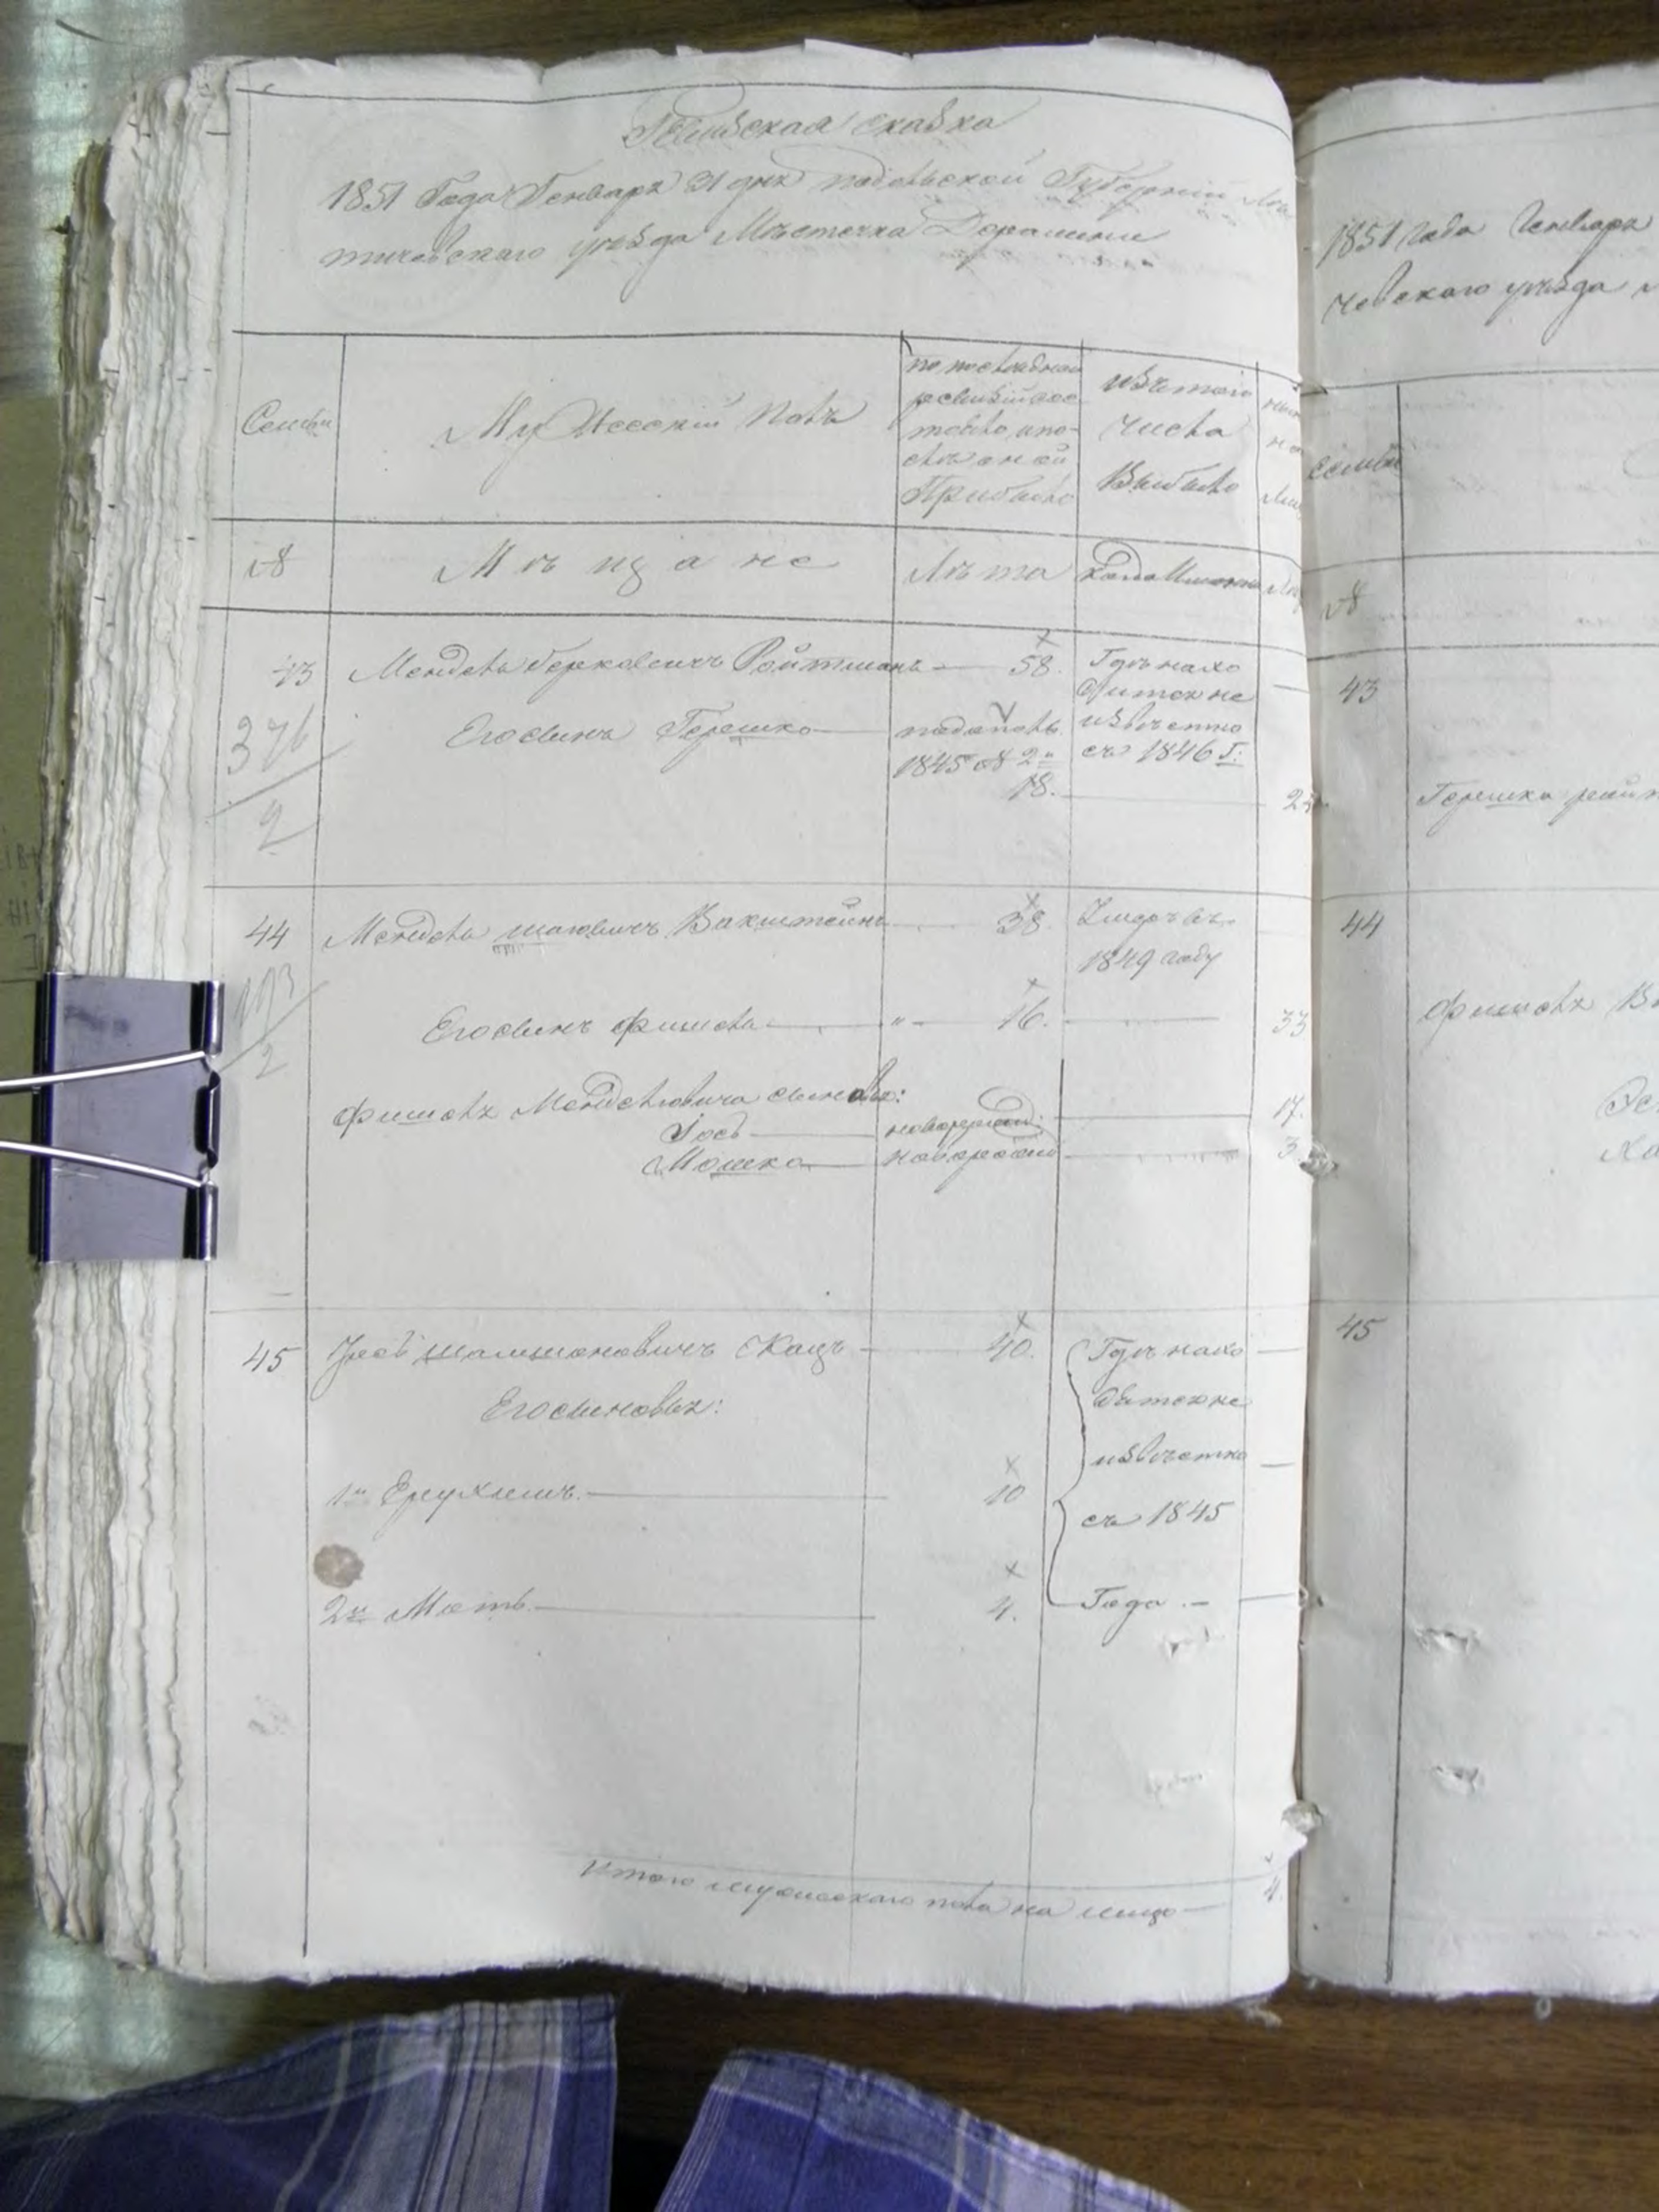 Ревизская сказка
1851 Года Генваря 31 дня Подольской Губернии Ле
тичевского уѣзда Мѣстечка Деражни
Семьи
Мужеской полъ
по послѣдней
ревизіи сос
тояло, и по-
слѣ оной
Прибыло
изъ того
числа
Выбыло
№
Мѣщане
Лѣта
Когда Именно
43
Мендель Берковичъ Ройтманъ
58.
Гдѣ нахо
дится не
извѣстно
съ 1846 Г:
Его сынъ Гершко
1845 № 2й
18.
376
2
44
Мендель Шаговичъ Вакштейнъ
38.
Умеръ въ
1849 году
193
2
Его сынъ Фишель
"
16.
33
Фишеля Менделевича сыновья:
Іось
новорожд:
17.
Мошко
новорожд
3
45
Іось Шамшоновичъ Кацъ
40.
Гдѣ нахо
дятся не
извѣстно
съ 1845
Года.
Его сыновья:
1й Ерухимъ.
10
2й Моть.
4.
Итого мужескаго пола на лицо
4.
1851 Года Генваря
чевского уѣзда
Семьи
№
43
Гершка
44
Фишеля
45